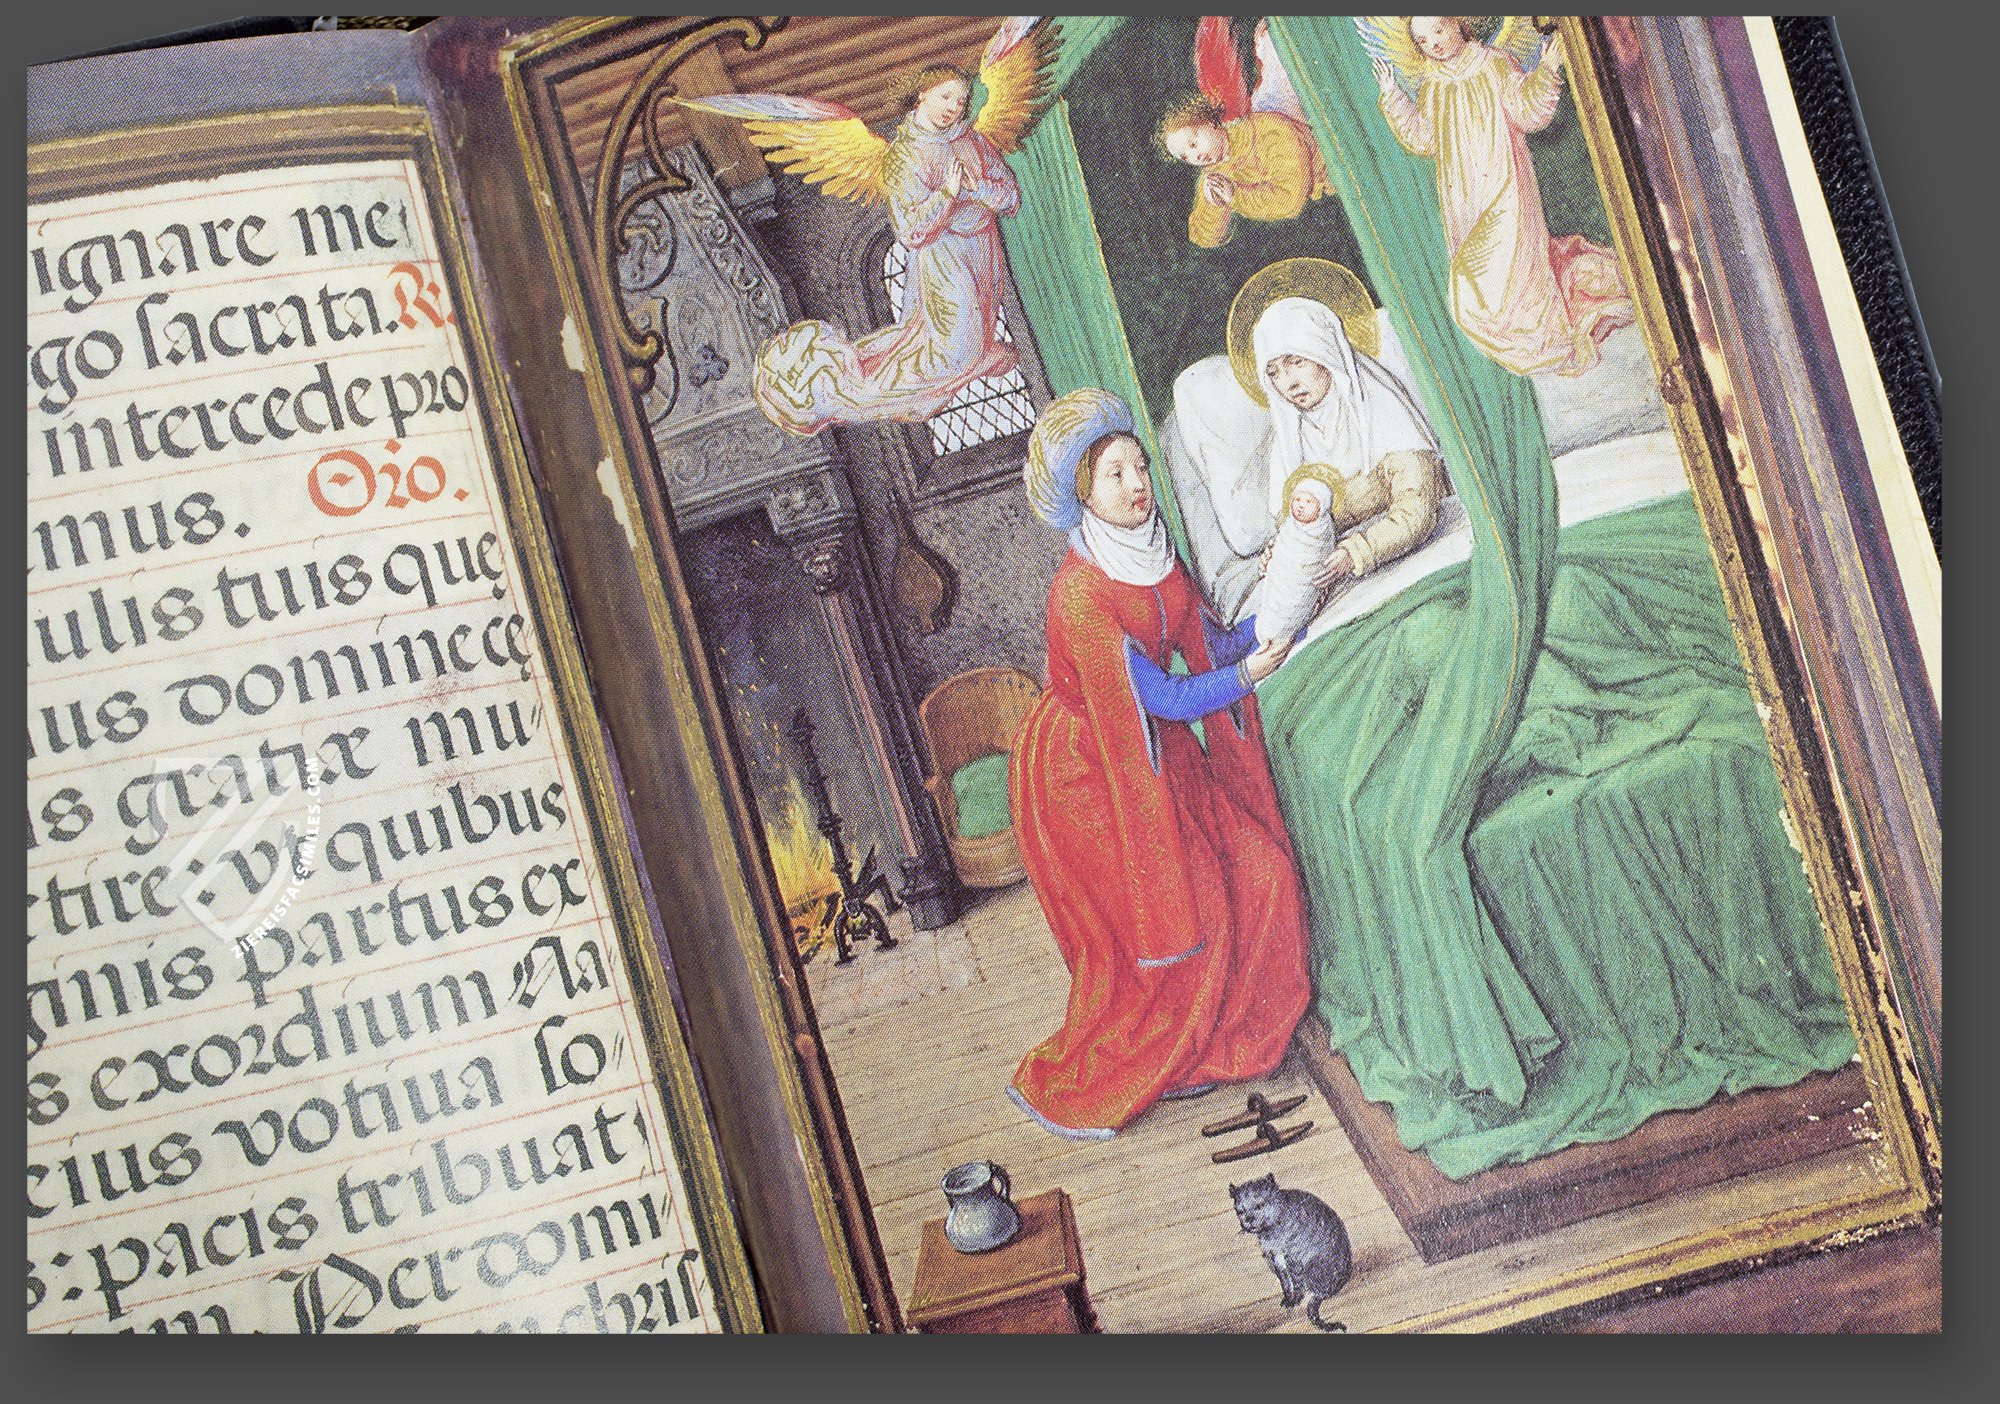 ignare me
go sacrata. R.
intercede pro
mus. Oro.
ulis tuis quę
us domine cę
is gratiæ mu
rtire: vt quibus
ginis partus ex
s exordium Na
eius votiua so
s: pacis tribuat
m. Per domi
chris
ZIEREISFACSIMILES.COM